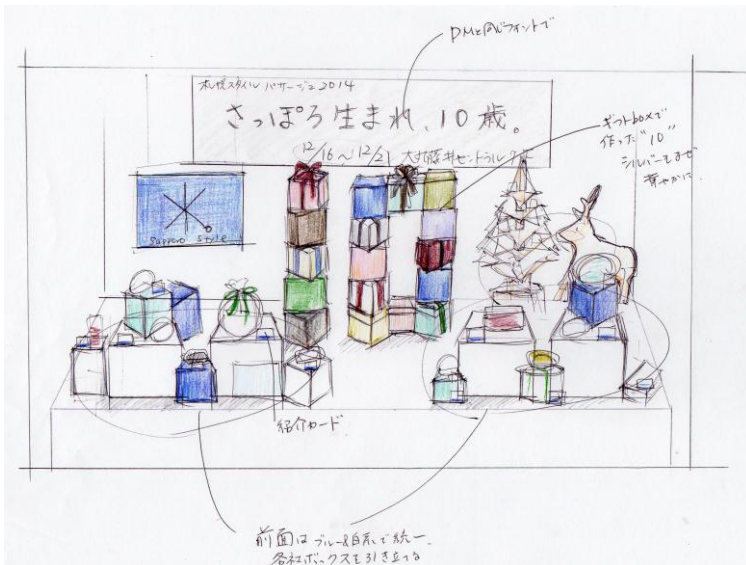 DMと同じフォントで
札幌スタイル パサージュ 2014
さっぽろ生まれ、10歳。
12/16〜12/21 大丸藤井セントラル
ギフトboxで
作った"10"
シルバーもまぜ
華やかに
Sapporo Style
紹介カード
前面はブルー&白系で統一
各社ボックスを引き立てる